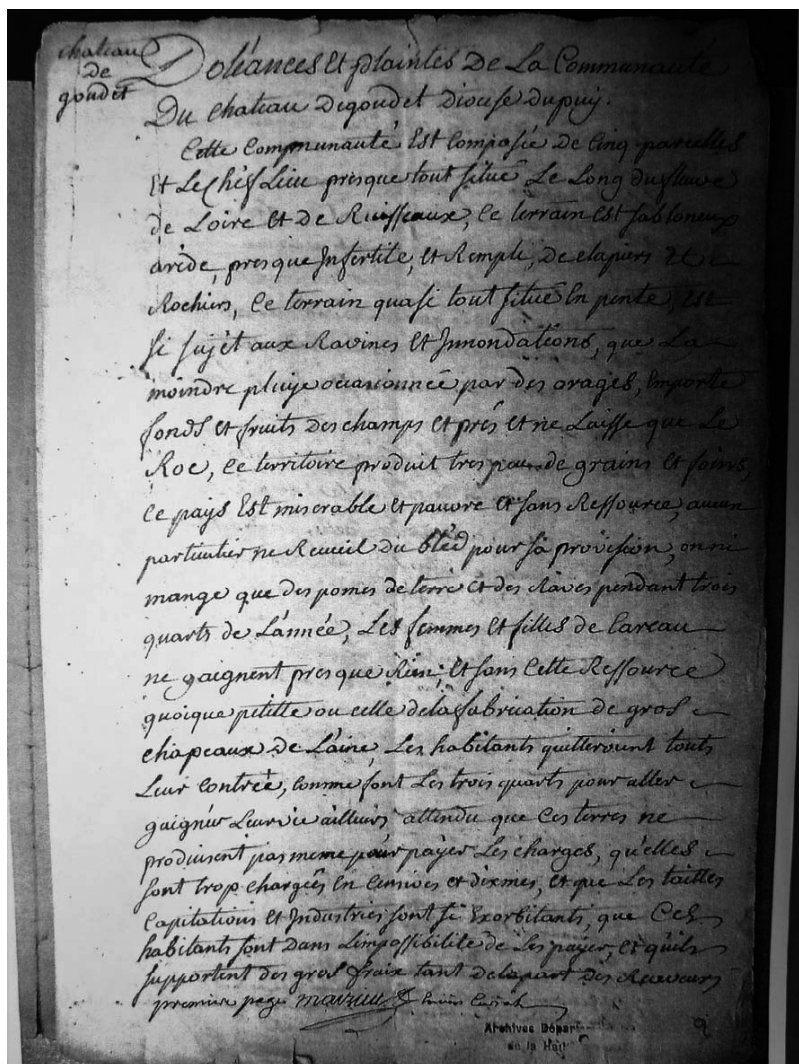 chateau
de
goudet
Doléances et plaintes De La Communauté
Du chateau Degoudet Diocese Dupuy.
Cette Communauté Est Composée De Cinq parcelles
Et Le Chef Lieu presque tout situé Le Long du fleuve
de Loire Et de Ruisseaux, Ce terrain Est sabloneux
aride, presque Infertile, Et Rempli, De clapiers Et
Rochiers, Ce terrain quasi tout situé En pente, Est
si sujet aux Ravines Et Innondations, que La
moindre pluye occasionnée par des orages, Emporte
fonds Et fruits Des champs Et prés Et ne Laisse que Le
Roc, Ce territoire produit tres peu de grains Et foins,
Ce pays Est miserable Et pauvre Et sans Ressource, aucun
particulier ne Recueil Du bléd pour sa provision, on ni
mange que des pomes de terre Et des Raves pendant trois
quarts de L'année, Les femmes Et filles de Careau
ne gaignent presque Rien, Et sans Cette Ressource
quoique petitte ou celle dela fabrication de gros
chapeaux de Laine, Les habitants quitteroient touts
Leur Contrée, Comme font Les trois quarts pour aller
gaigner Leur vie ailleurs, attendu que Ces terres ne
produisent pas meme pour payer Les charges, qu'elles
sont trop chargées En Censives et dixmes, Et que Les tailles
Capitations Et Industries sont si Exorbitants, que Ces
habitants sont Dans L'impossibilité de Les payer, Et qu'ils
supportent des gros fraix tant dela part des Receveurs
premiere page
Archives Dépar
de la Hau